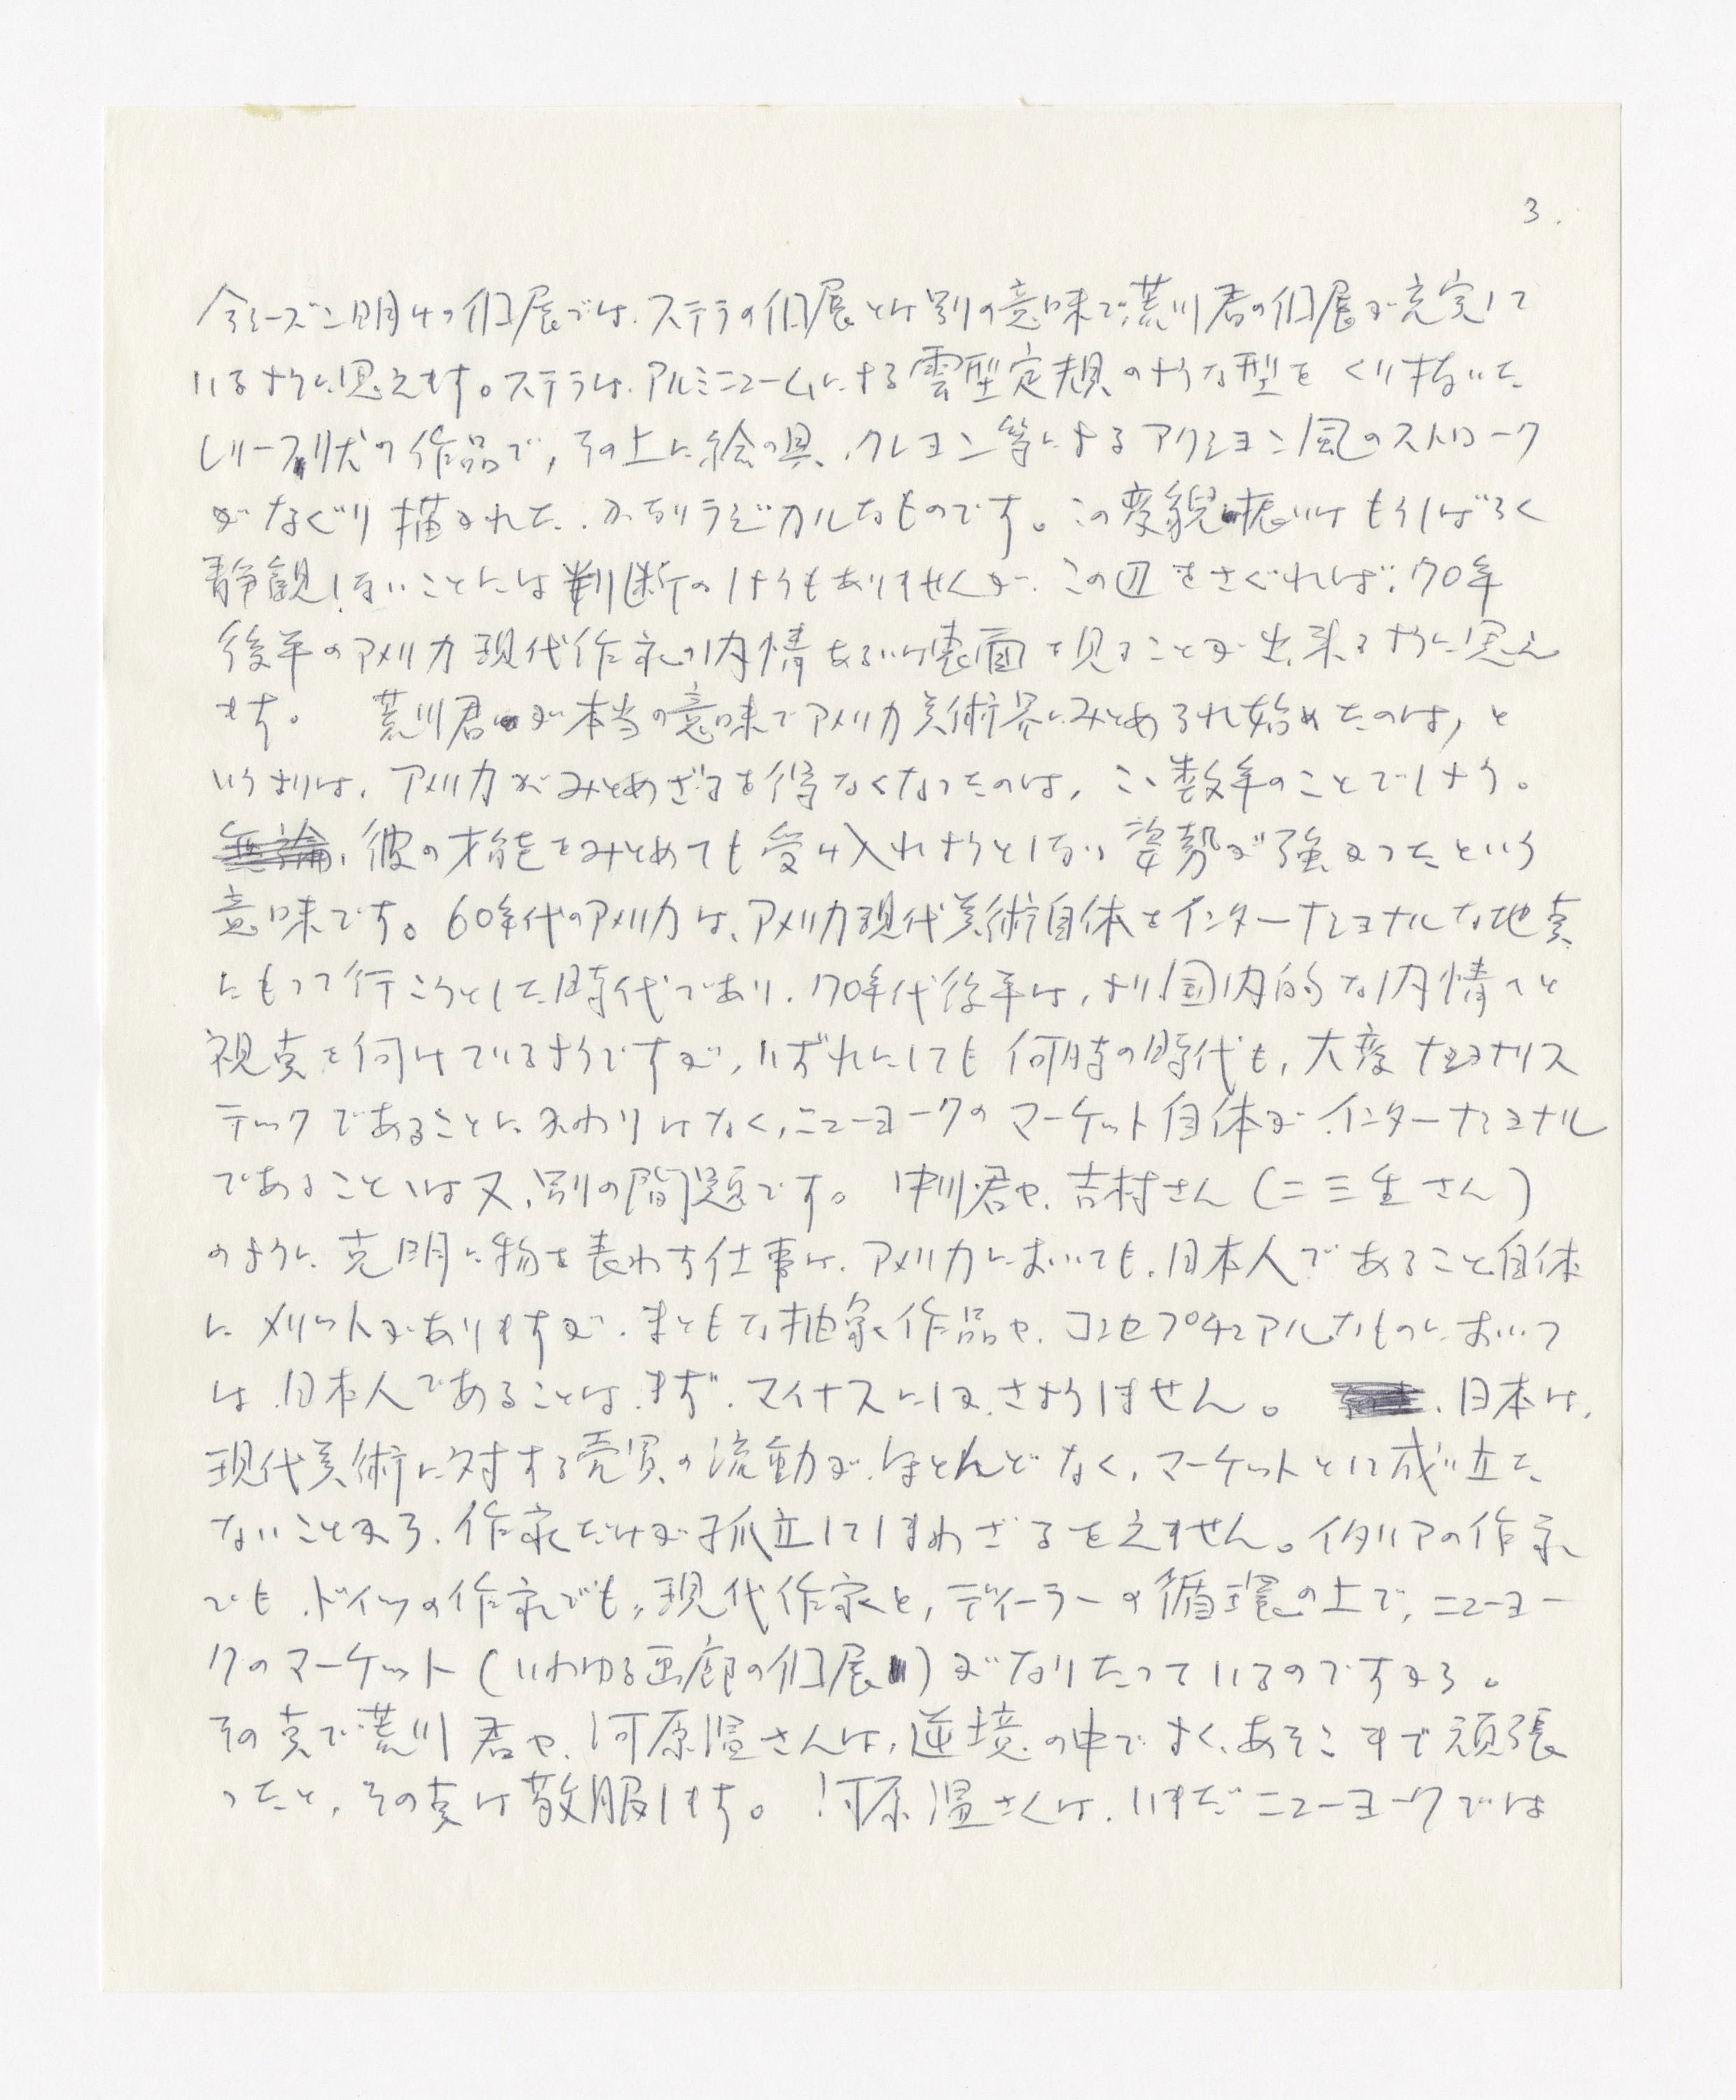 3.
今シーズン明けの個展では、ステラの個展とは別の意味で、荒川君の個展が充実して
いるように思えます。ステラは、アルミニュームによる雲型定規のような型をくり抜いた
レリーフ状の作品で、その上に絵の具、クレヨン等によるアクション風のストローク
がなぐり描かれた、かなりラジカルなものです。この変貌振りはもうしばらく
静観しないことには判断のしようもありませんが、この辺をさぐれば、70年
後半のアメリカ現代作家の内情あるいは裏面を見ることが出来るように思え
ます。 荒川君が本当の意味でアメリカ美術界にみとめられ始めたのは、と
いうよりは、アメリカがみとめざるを得なくなったのは、こゝ数年のことでしょう。
無論、彼の才能をみとめても受け入れようとしない姿勢が強かったという
意味です。60年代のアメリカは、アメリカ現代美術自体をインターナショナルな地点
にもって行こうとした時代であり、70年代後半は、より国内的な内情へと
視点を向けているようですが、いずれにしても何時の時代も、大変ナショナリス
テックであることにかわりはなく、ニューヨークのマーケット自体が、インターナショナル
であることは又、別の問題です。 中川君や、吉村さん(二三生さん)
のように、克明に物を表わす仕事は、アメリカにおいても、日本人であること自体
にメリットがありますが、まともな抽象作品や、コンセプチュアルなものにおいて
は、日本人であることは、まず、マイナスにしか、さようしません。 、日本は、
現代美術に対する売買の流動が、ほとんどなく、マーケットとして成り立た
ないことから、作家だけが孤立してしまわざるをえません。イタリアの作家
でも、ドイツの作家でも、現代作家と、ディーラーの循環の上で、ニューヨー
クのマーケット(いわゆる画廊の個展)がなりたっているのですから。
その点で荒川君や、河原温さんは、逆境の中でよく、あそこまで頑張
ったと、その点は敬服します。 河原温さんは、いまだニューヨークでは